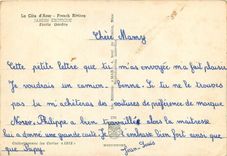 La Côte d'Azur - French Riviera
JARDIN EXOTIQUE
Exotic Garden
Chère Mamy
Cette petite lettre que tu m'as envoyée ma fait plaisir
Je voudrais un camion benne. Si tu ne le trouves
pas tu m'achèteras des voitures de préférence de marque
Norev. Philippe a bien travaillé alors la maitresse
lui a donné une grande carte. Je t'embrasse bien fort ainsi que
que Papy.
Jean-Louis